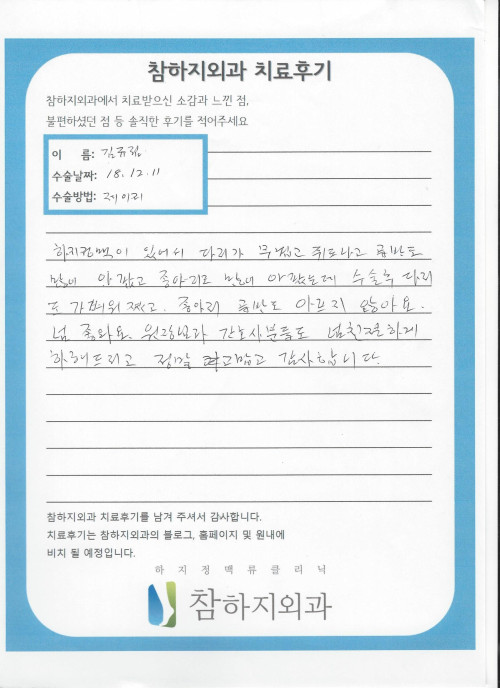 참하지외과 치료후기
참하지외과에서 치료받으신 소감과 느낀 점,
불편하셨던 점 등 솔직한 후기를 적어주세요
이 름:
수술날짜: 18. 12. 11
수술방법:
하지정맥이 있어서 다리가 무겁고 쥐도나고 골반도
많이 아팠고 종아리도 많이 아팠는데 수술후 다리
도 가벼워 졌고. 종아리 골반도 아프지 않아요.
넘 좋와요. 원장님과 간호사분들도 넘친절하게
하해드리고 정말 고맙고 감사합니다.
참하지외과 치료후기를 남겨 주셔서 감사합니다.
치료후기는 참하지외과의 블로그, 홈페이지 및 원내에
비치 될 예정입니다.
하지정맥류클리닉
참하지외과